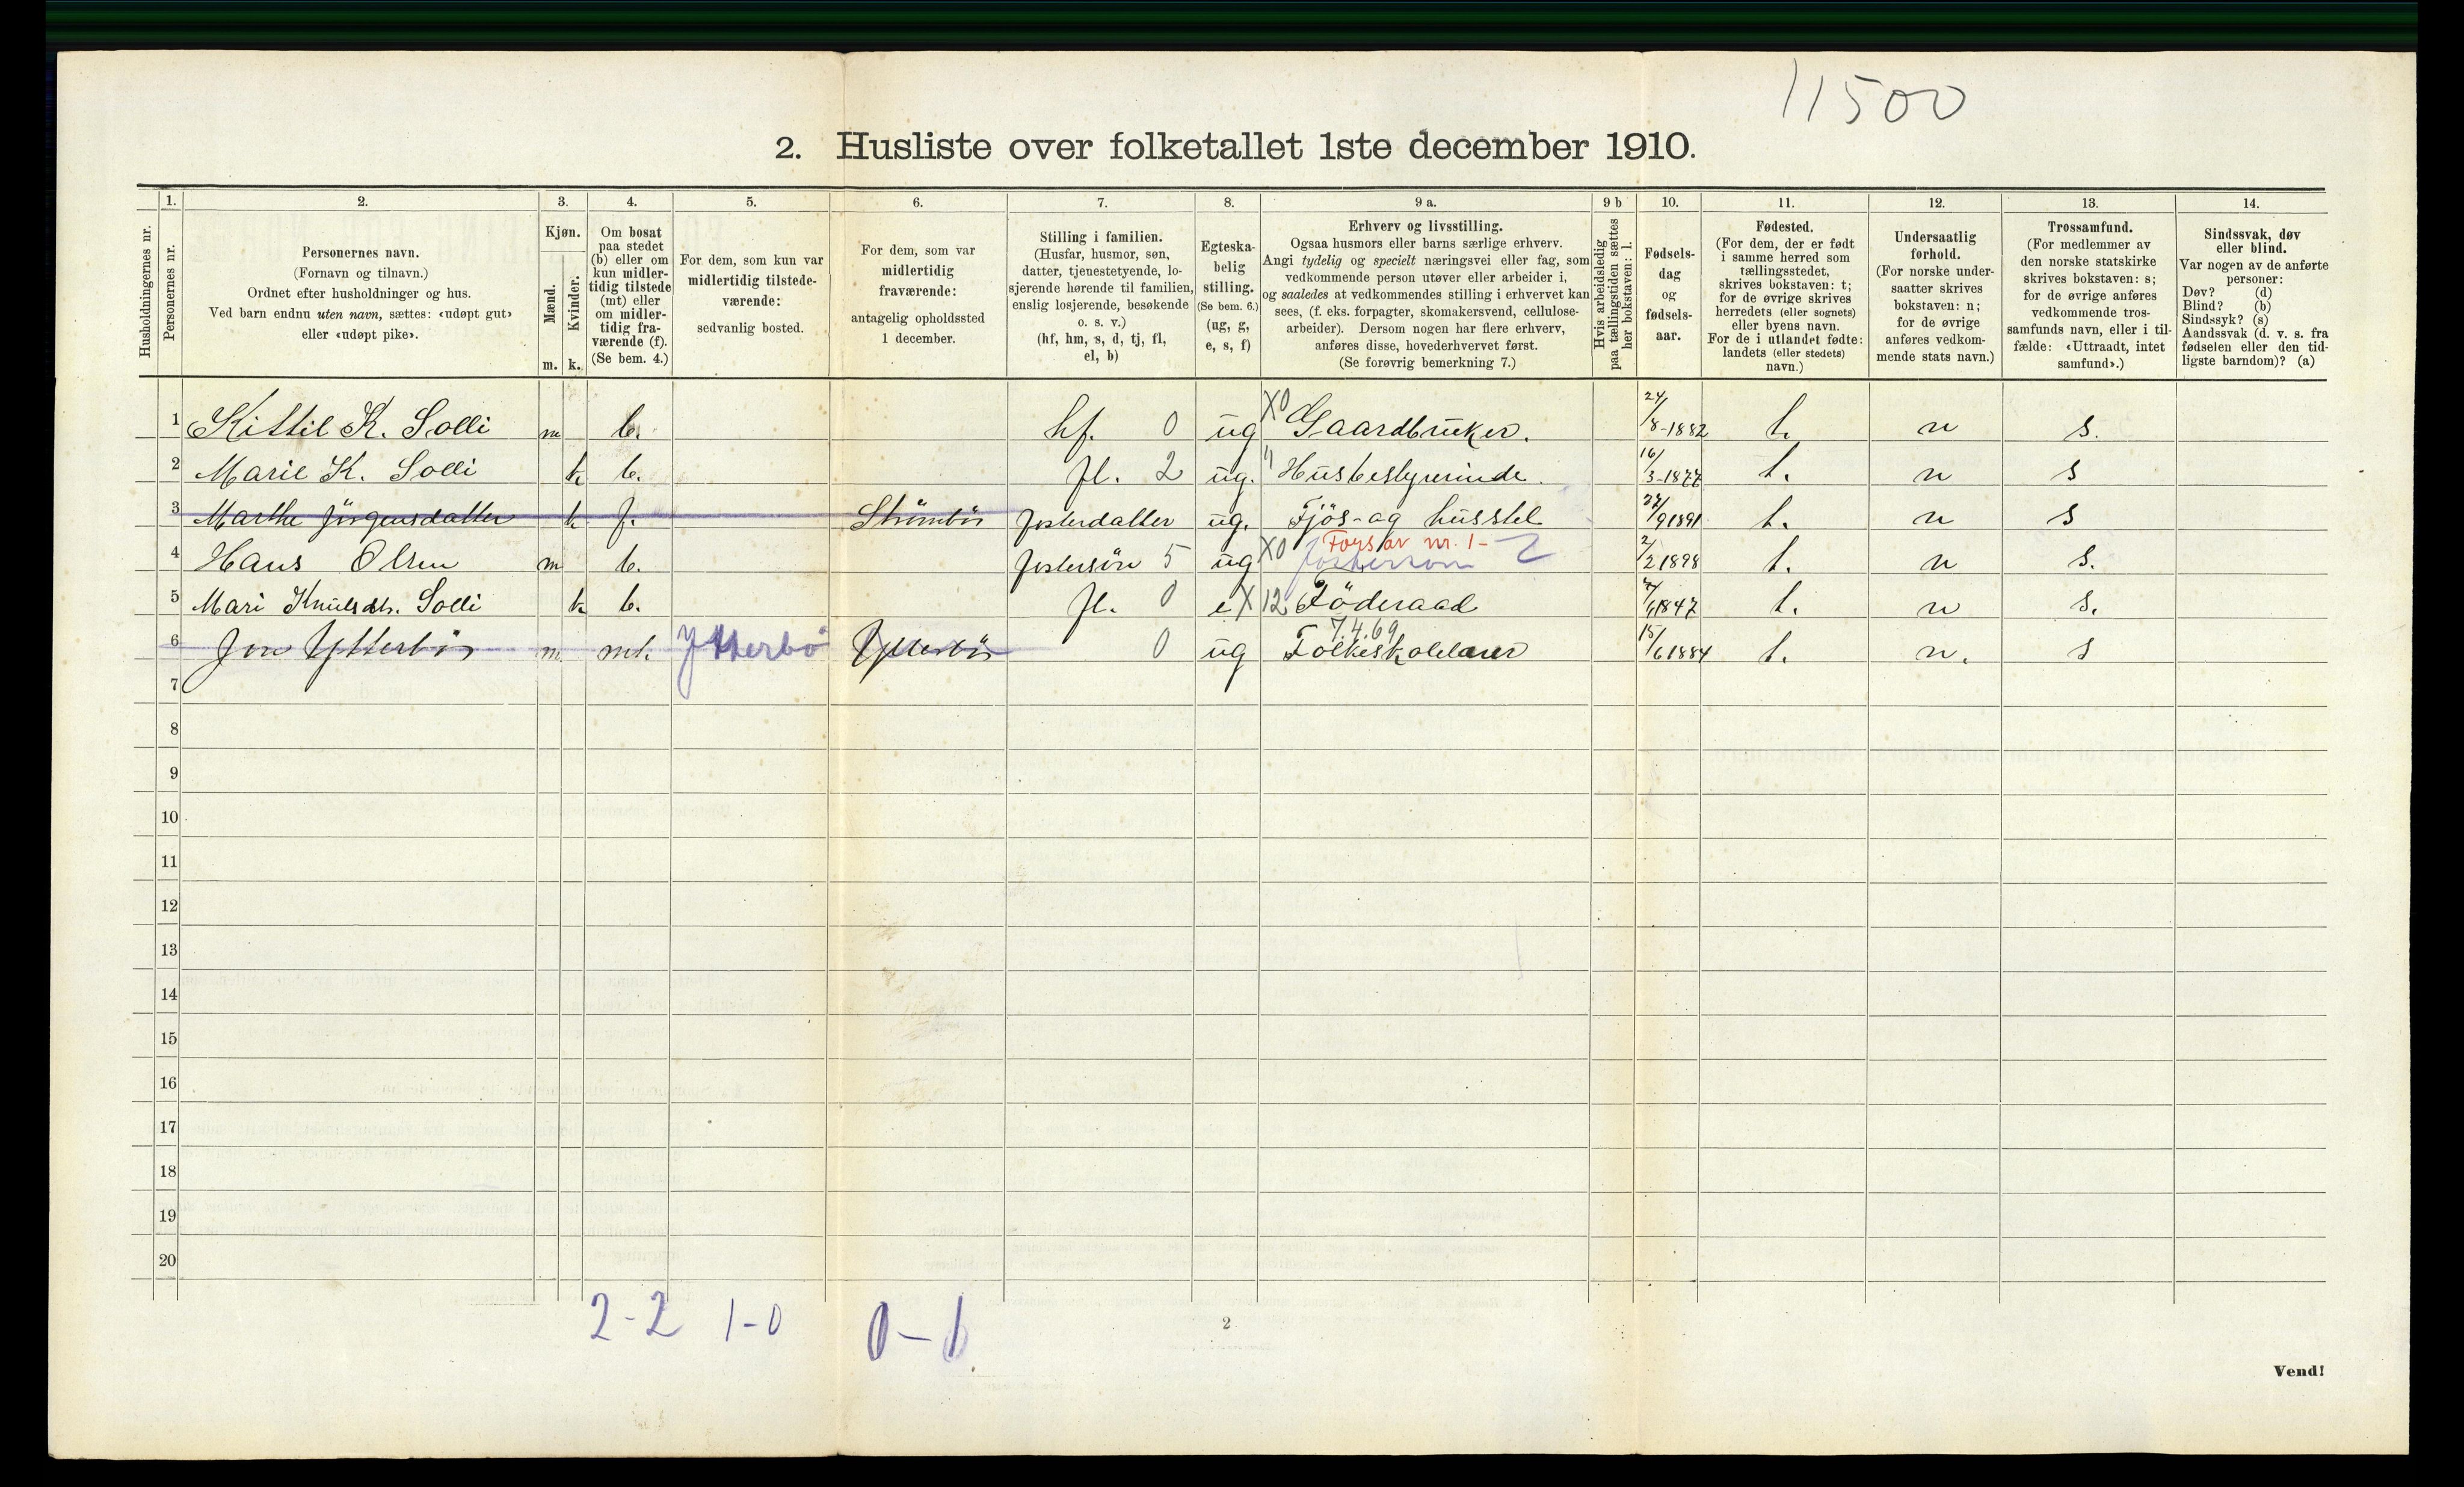 11500
2. Husliste over folketallet 1ste december 1910.
Husholdningernes nr.
1. Personernes nr.
2. Personernes navn.
(Fornavn og tilnavn.)
Ordnet efter husholdninger og hus.
Ved barn endnu uten navn, sættes: «udøpt gut»
eller «udøpt pike».
3. Kjøn.
Mænd. m.
Kvinder. k.
4. Om bosat
paa stedet
(b) eller om
kun midler-
tidig tilstede
(mt) eller
om midler-
tidig fra-
værende (f).
(Se bem. 4.)
5. For dem, som kun var
midlertidig tilstede-
værende:
sedvanlig bosted.
6. For dem, som var
midlertidig
fraværende:
antagelig opholdssted
1 december.
7. Stilling i familien.
(Husfar, husmor, søn,
datter, tjenestetyende, lo-
sjerende hørende til familien,
enslig losjerende, besøkende
o. s. v.)
(hf, hm, s, d, tj, fl,
el, b)
8. Egteska-
belig
stilling.
(Se bem. 6.)
(ug, g,
e, s, f)
9 a. Erhverv og livsstilling.
Ogsaa husmors eller barns særlige erhverv.
Angi tydelig og specielt næringsvei eller fag, som
vedkommende person utøver eller arbeider i,
og saaledes at vedkommendes stilling i erhvervet kan
sees, (f. eks. forpagter, skomakersvend, cellulose-
arbeider). Dersom nogen har flere erhverv,
anføres disse, hovederhvervet først.
(Se forøvrig bemerkning 7.)
9 b Hvis arbeidsledig
paa tællingstiden sættes
her bokstaven: l.
10. Fødsels-
dag
og
fødsels-
aar.
11. Fødested.
(For dem, der er født
i samme herred som
tællingsstedet,
skrives bokstaven: t;
for de øvrige skrives
herredets (eller sognets)
eller byens navn.
For de i utlandet fødte:
landets (eller stedets)
navn.)
12. Undersaatlig
forhold.
(For norske under-
saatter skrives
bokstaven: n;
for de øvrige
anføres vedkom-
mende stats navn.)
13. Trossamfund.
(For medlemmer av
den norske statskirke
skrives bokstaven: s;
for de øvrige anføres
vedkommende tros-
samfunds navn, eller i til-
fælde: «Uttraadt, intet
samfund».)
14. Sindssvak, døv
eller blind.
Var nogen av de anførte
personer:
Døv? (d)
Blind? (b)
Sindssyk? (s)
Aandssvak (d. v. s. fra
fødselen eller den tid-
ligste barndom)? (a)
1 Kittil K. Solli m b. hf. 0 ug X0 Gaardbruker. 24/8-1882 t. n s.
2 Marie K. Solli k b. fl. 2 ug. " Husbestyrerinde. 16/3-1877 t. n s
3 Marthe Jörgensdatter k f. Strömbör fosterdatter ug. Fjös- og husstel 27/9 1891 t. n s
4 Hans Olsen m b. fostersön 5 ug X0 Fors av nr. 1- fosterson 2/2 1898 t. n s.
5 Mari Knutsdtr. Solli k b. fl. 0 e X 12 Föderaad 7/6 1847 t. n s.
6 Jon Ytterbör m mt. Ytterbö Ytterbör 0 ug 7.4.69 Folkeskolelærer 15/6 1884 t. n. s
7
8
9
10
11
12
13
14
15
16
17
18
19
20
2-2 1-0 0-1
2
Vend!